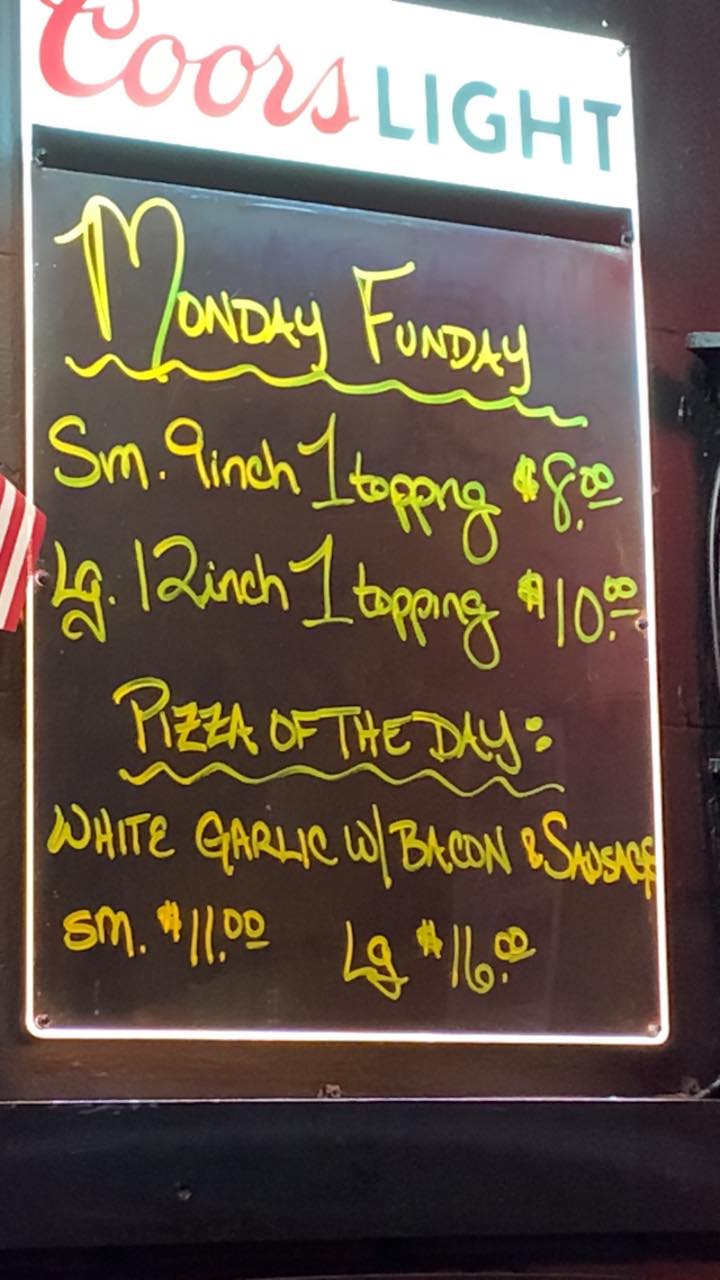 Coors LIGHT
MONDAY FUNDAY
Sm. 9inch 1 toppng $8.00
Lg. 12inch 1 topping $10.00
PIZZA OF THE DAY:
WHITE GARLIC W/ BACON & SAUSAGE
SM. $11.00 Lg $16.00